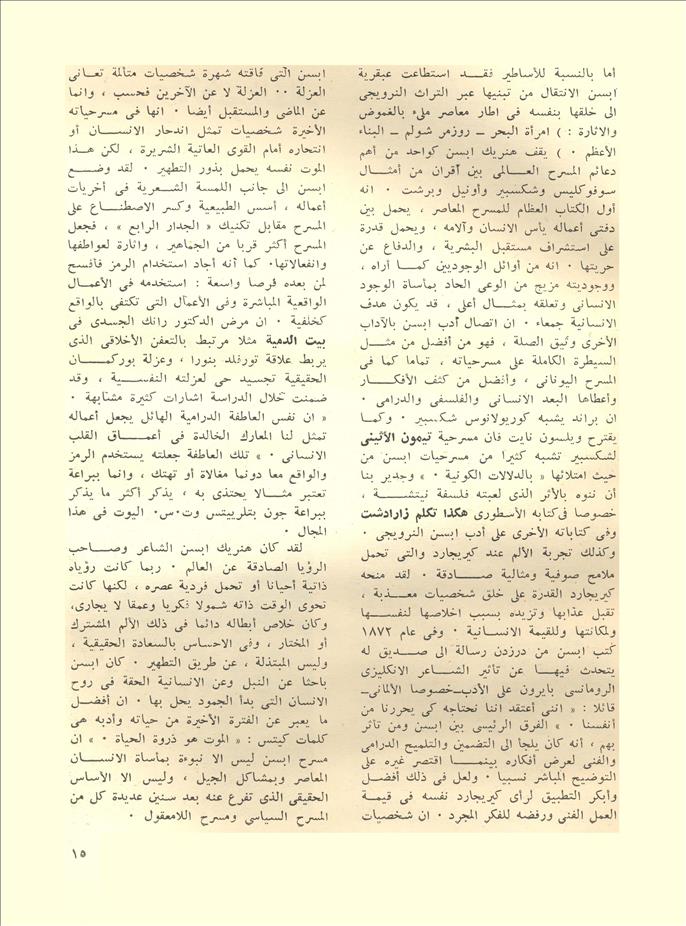 أما بالنسبة للأساطير فقد استطاعت عبقرية
ابسن الانتقال من تبنيها عبر التراث النرويجي
الى خلقها بنفسه فى اطار معاصر ملىء بالغموض
والاثارة : ) امرأة البحر ــ روزمر شولم ــ البناء
الأعظم ٠ ) يقف هنريك ابسن كواحد من أهم
دعائم المسرح العالمى بين أقران من أمثال
سوفوكليس وشكسبير وأونيل وبرشت ٠ انه
أول الكتاب العظام للمسرح المعاصر ، يحمل بين
دفتى أعماله يأس الانسان وآلامه ، ويحمل قدرة
على استشراف مستقبل البشرية ، والدفاع عن
حريتها ٠ انه من أوائل الوجوديين كما أراه ،
ووجوديته مزيج من الوعى الحاد بمأساة الوجود
الانسانى وتعلقه بمثال أعلى ، قد يكون هدف
الانسانية جمعاء ٠ ان اتصال أدب ابسن بالآداب
الأخرى وثيق الصلة ، فهو من أفضل من مثل
السيطرة الكاملة على مسرحياته ، تماما كما فى
المسرح اليونانى ، وأفضل من كثف الأفكار
وأعطاها البعد الانسانى والفلسفى والدرامى ٠
ان براند يشبه كوريولانوس شكسبير ٠ وكما
يقترح ويلسون نايت فان مسرحية تيمون الأثينى
لشكسبير تشبه كثيرا من مسرحيات ابسن من
حيث امتلائها « بالدلالات الكونية ٠ » وجدير بنا
أن ننوه بالأثر الذى لعبته فلسفة نيتشه ،
خصوصا فى كتابه الأسطورى هكذا تكلم زارادشت
وفى كتاباته الأخرى على أدب ابسن النرويجى ٠
وكذلك تجربة الألم عند كيريجارد والتى تحمل
ملامح صوفية ومثالية صادقة ٠ لقد منحه
كيريجارد القدرة على خلق شخصيات معذبة ،
تقبل عذابها وتزيده بسبب اخلاصها لنفسها
ولمكانتها وللقيمة الانسانية ٠ وفى عام ١٨٧٢
كتب ابسن من درزدن رسالة الى صديق له
يتحدث فيها عن تأثير الشاعر الانكليزى
الرومانسى بايرون على الأدب ــ خصوصا الألمانى ــ
قائلا : « اننى أعتقد اننا نحتاجه كى يحررنا من
أنفسنا ٠ » الفرق الرئيسى بين ابسن ومن تأثر
بهم ، أنه كان يلجأ الى التضمين والتلميح الدرامى
والفنى لعرض أفكاره بينما اقتصر غيره على
التوضيح المباشر نسبيا ٠ ولعل فى ذلك أفضل
وأبكر التطبيق لرأى كيريجارد نفسه فى قيمة
العمل الفنى ورفضه للفكر المجرد ٠ ان شخصيات
ابسن التى فاقته شهرة شخصيات متألمة تعانى
العزلة ٠٠ العزلة لا عن الآخرين فحسب ، وانما
عن الماضى والمستقبل أيضا ٠ انها فى مسرحياته
الأخيرة شخصيات تمثل اندحار الانسان أو
انتحاره أمام القوى العاتية الشريرة ، لكن هذا
الموت نفسه يحمل بذور التطهير ٠ لقد وضع
ابسن الى جانب اللمسة الشعرية فى أخريات
أعماله ، أسس الطبيعية وكسر الاصطناع على
المسرح مقابل تكنيك « الجدار الرابع » ، فجعل
المسرح أكثر قربا من الجماهير ، واثارة لعواطفها
وانفعالاتها٠ كما أنه أجاد استخدام الرمز فأفسح
لمن بعده فرصا واسعة : استخدمه فى الأعمال
الواقعية المباشرة وفى الأعمال التى تكتفى بالواقع
كخلفية ٠ ان مرض الدكتور رانك الجسدى فى
بيت الدمية مثلا مرتبط بالتعفن الأخلاقى الذى
يربط علاقة تورفلد بنورا ، وعزلة بوركمان
الحقيقية تجسيد حى لعزلته النفسية ، وقد
ضمنت خلال الدراسة اشارات كثيرة مشابهة ٠
« ان نفس العاطفة الدرامية الهائل يجعل أعماله
تمثل لنا المعارك الخالدة فى أعماق القلب
الانسانى ٠ » تلك العاطفة جعلته يستخدم الرمز
والواقع معا دونما مغالاة أو تهتك ، وانما ببراعة
تعتبر مثالا يحتذى به ، يذكر أكثر ما يذكر
ببراعة جون بتلرييتس وت٠س٠ اليوت فى هذا
المجال ٠
لقد كان هنريك ابسن الشاعر وصاحب
الرؤيا الصادقة عن العالم ٠ ربما كانت رؤياه
ذاتية أحيانا أو تحمل فردية عصره ، لكنها كانت
تحوى الوقت ذاته شمولا فكريا وعمقا لا يجارى،
وكان خلاص أبطاله دائما فى ذلك الألم المشترك
أو المختار ، وفى الاحساس بالسعادة الحقيقية ،
وليس المبتذلة ، عن طريق التطهير ٠ كان ابسن
باحثا عن النبل وعن الانسانية الحقة فى روح
الانسان التى بدأ الجمود يحل بها ٠ ان أفضل
ما يعبر عن الفترة الأخيرة من حياته وأدبه هى
كلمات كيتس : « الموت هو ذروة الحياة ٠ » ان
مسرح ابسن ليس الا نبوءة بمأساة الانسان
المعاصر وبمشاكل الجيل ، وليس الا الأساس
الحقيقى الذى تفرع عنه بعد سنين عديدة كل من
المسرح السياسى ومسرح اللامعقول ٠
١٥